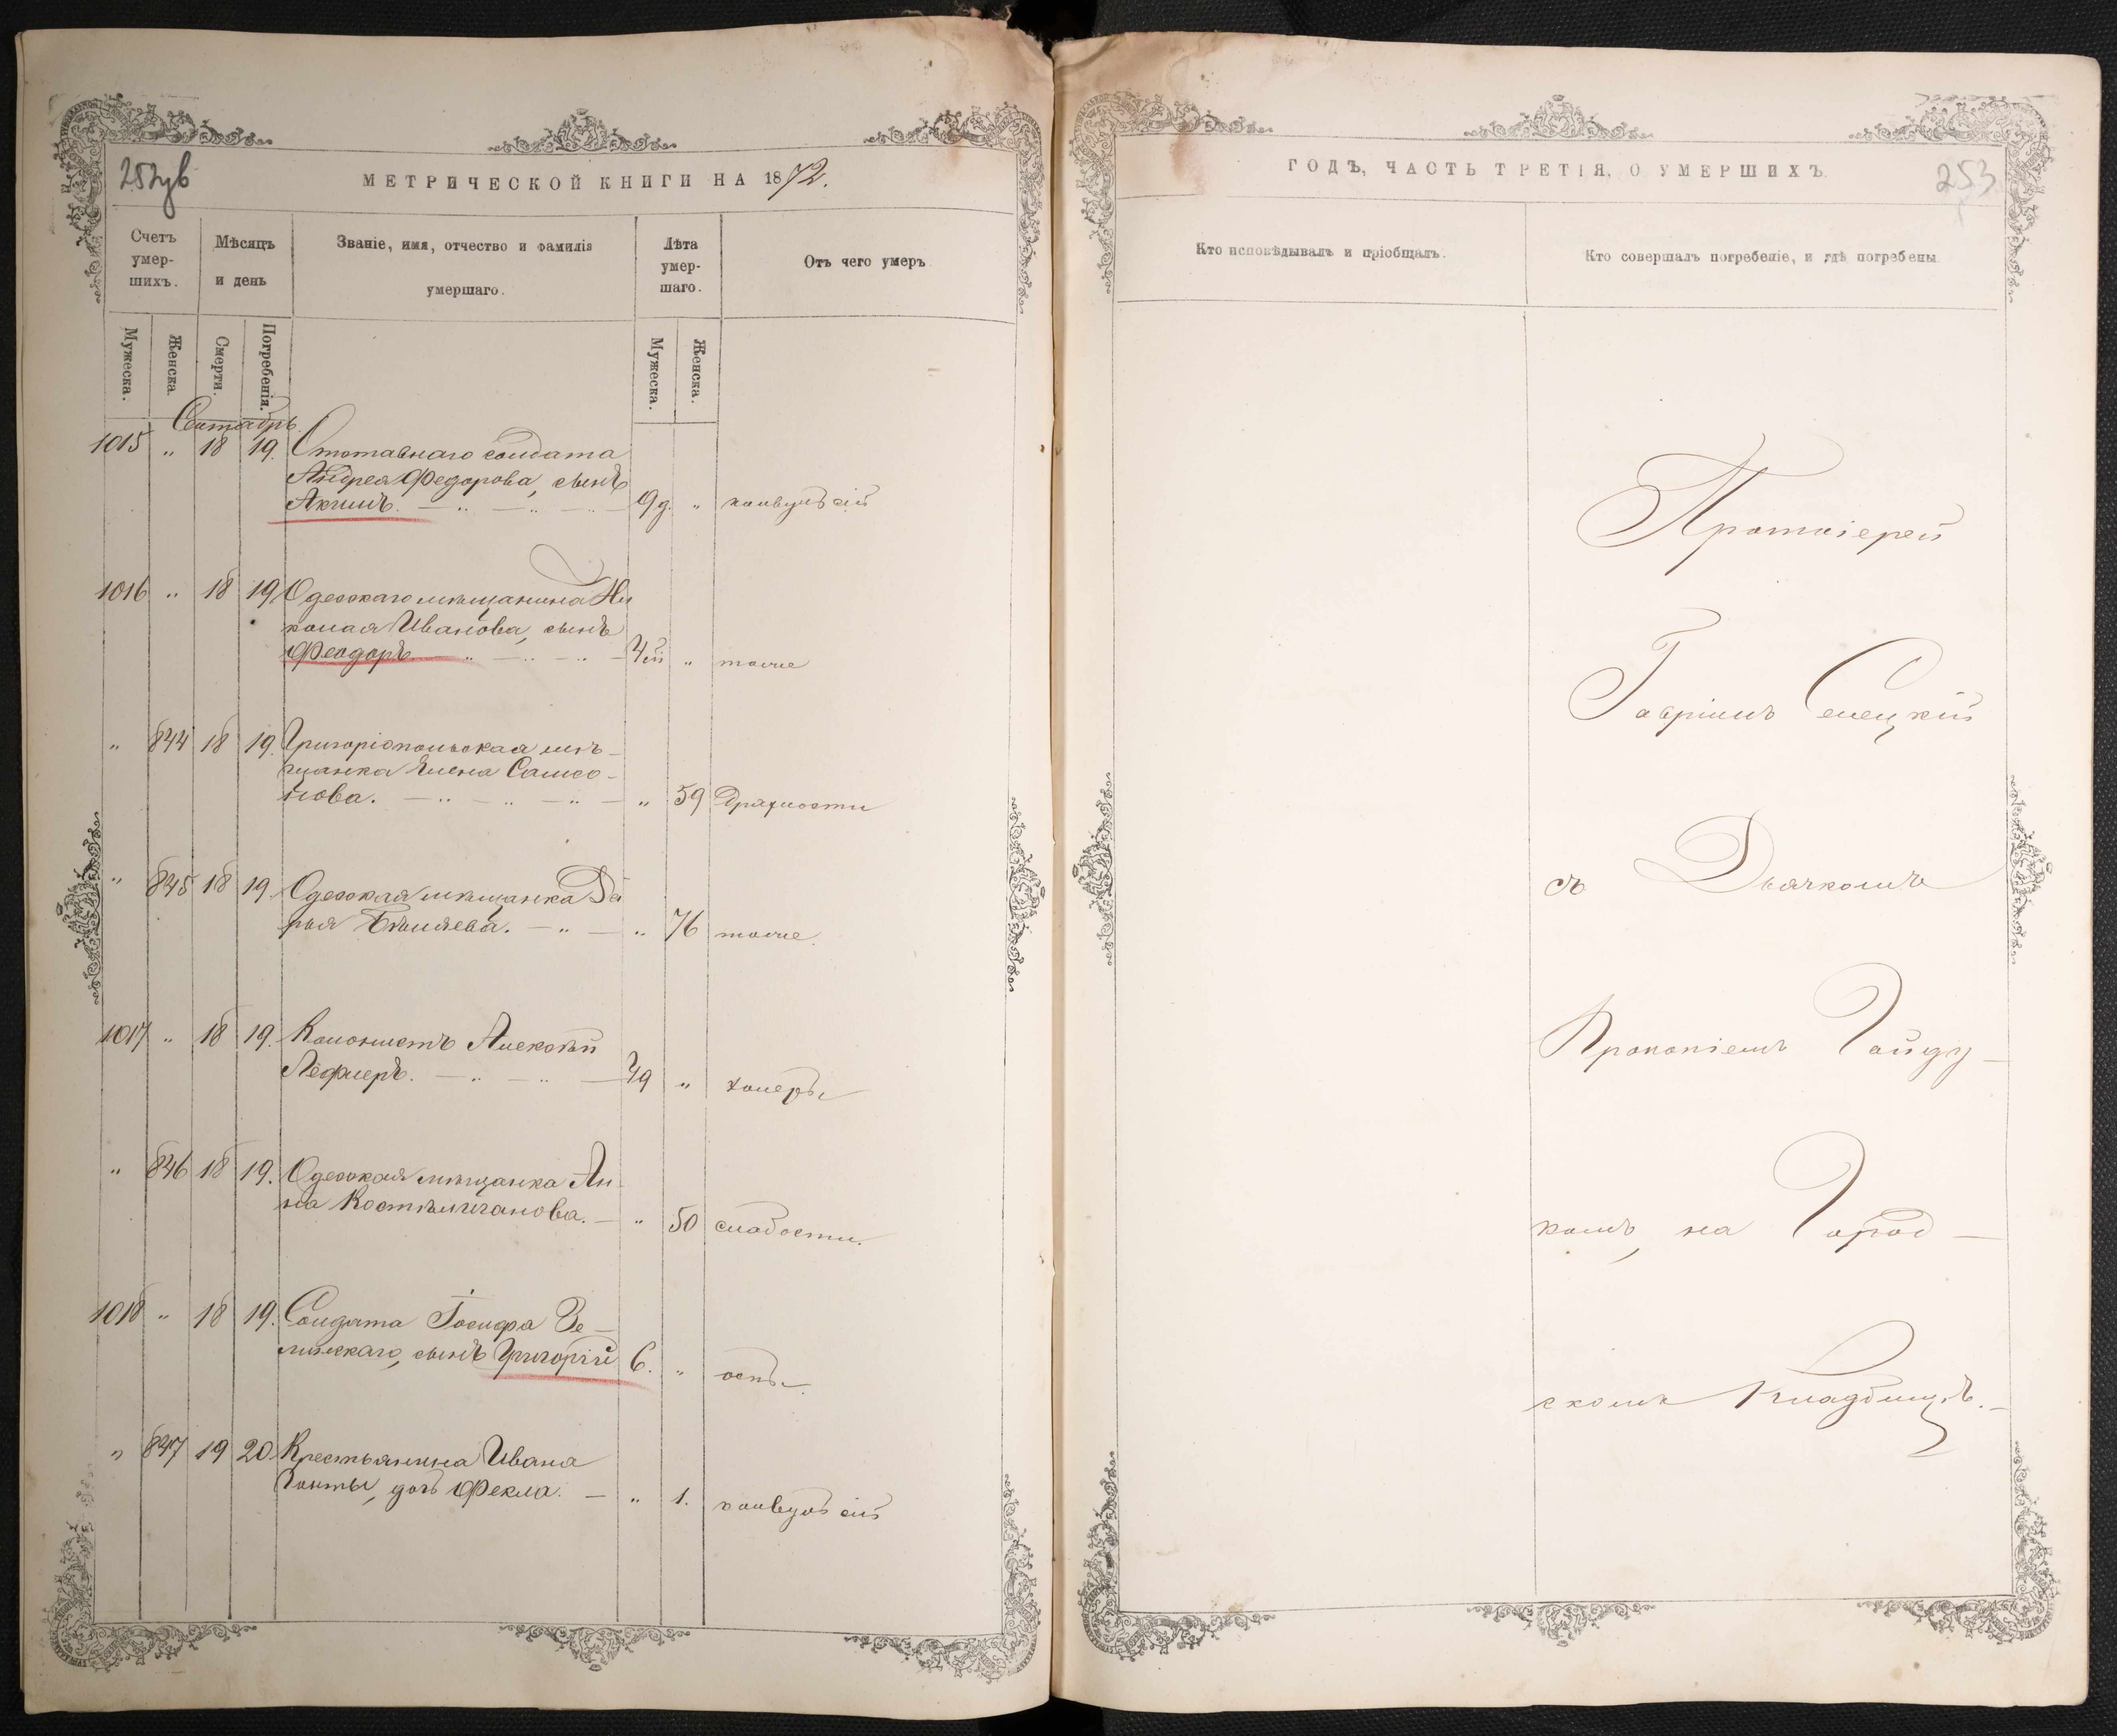 252зв
МЕТРИЧЕСКОЙ КНИГИ НА 1872.
Счетъ умер-шихъ.
Мѣсяцъ и день
Званіе, имя, отчество и фамилія умершаго.
Лѣта умер-шаго.
Отъ чего умеръ
Мужеска.
Женска.
Смерти.
Погребенія.
Мужеска.
Женска.
Сентябрь.
1015 " 18 19. Отставнаго солдата
Андрея Федорова, сынъ
Акимъ. 9д. " конвульсій
1016 " 18 19 Одесскаго мѣщанина Ни
колая Иванова, сынъ
Феодоръ " тоже
" 844 18 19. Григоріопольская мѣ-
щанка Елена Самсо-
нова. " 59 Дряхлости
" 845 18 19 Одесская мѣщанка Да
рья Бѣляева. " 76 тоже.
1017 " 18 19. Колонистъ Алексѣй
49 " холеры
" 846 18 19. Одесская мѣщанка Ан-
на " 50 слабости.
1018 " 18 19. Солдата Іосифа Зе-
линскаго, сынъ Григорій 6. " оспы.
" 847 19 20 Крестьянина Ивана
Гонты, дочь Фекла. " 1. конвульсій
ГОДЪ, ЧАСТЬ ТРЕТІЯ, О УМЕРШИХЪ.
253
Кто исповѣдывалъ и пріобщалъ.
Кто совершалъ погребеніе, и гдѣ погребены.
Протоіерей
Гавріилъ Селецкій
съ Дьячкомъ
Прокопіемъ Гайду-
комъ, на Город-
скомъ Кладбищѣ.